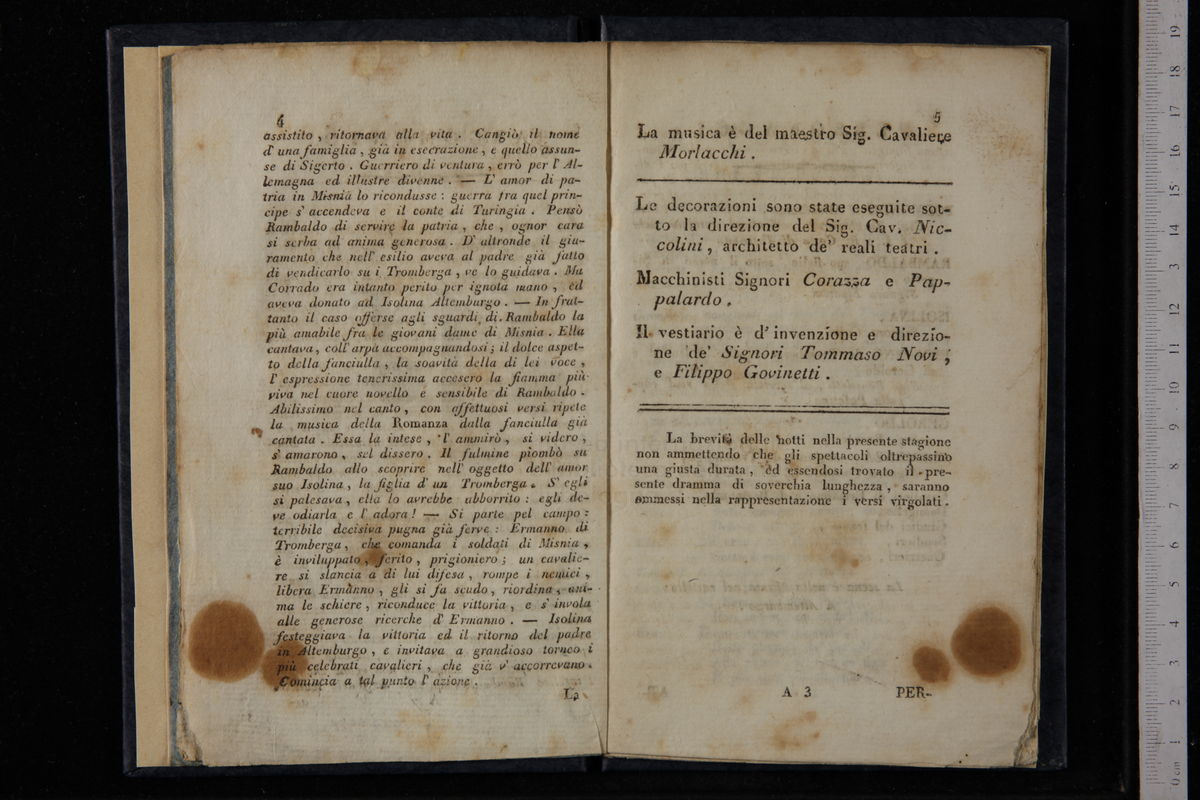 4
assistito , ritornava alla vita . Cangiò il nome
d' una famiglia , già in esecrazione , e quello assun-
se di Sigerto . Guerriero di ventura , errò per l' Al-
lemagna ed illustre divenne . — L' amor di pa-
tria in Misnia lo ricondusse : guerra fra quel prin-
cipe s' accendeva e il conte di Turingia . Pensò
Rambaldo di servire la patria , che , ognor cara
si serba ad anima generosa . D' altronde il giu-
ramento che nell' esilio aveva al padre già fatto
di vendicarlo su i Tromberga , ve lo guidava . Ma
Corrado era intanto perito per ignota mano , ed
aveva donato ad Isolina Altemburgo . — In frat-
tanto il caso offerse agli sguardi di Rambaldo la
più amabile fra le giovani dame di Misnia . Ella
cantava , coll' arpa accompagnandosi ; il dolce aspet-
to della fanciulla , la soavità della di lei voce ,
l' espressione tenerissima accesero la fiamma più
viva nel cuore novello e sensibile di Rambaldo .
Abilissimo nel canto , con affettuosi versi ripete
la musica della Romanza dalla fanciulla già
cantata . Essa la intese , l' ammirò , si videro ,
s' amarono , sel dissero . Il fulmine piombò su
Rambaldo allo scoprire nell' oggetto dell' amor
suo Isolina , la figlia d' un Tromberga . S' egli
si palesava , ella lo avrebbe abborrito : egli de-
ve odiarla e l' adora ! — Si parte pel campo :
terribile decisiva pugna già ferve : Ermanno di
Tromberga , che comanda i soldati di Misnia ,
è inviluppato , ferito , prigioniero ; un cavalie-
re si slancia a di lui difesa , rompe i nemici ,
libera Ermanno , gli si fa scudo , riordina , ani-
ma le schiere , riconduce la vittoria , e s' invola
alle generose ricerche d' Ermanno . — Isolina
festeggiava la vittoria ed il ritorno del padre
in Altemburgo , e invitava a grandioso torneo i
più celebrati cavalieri , che già v' accorrevano .
Comincia a tal punto l' azione .
La
5
La musica è del maestro Sig. Cavaliere
Morlacchi .
Le decorazioni sono state eseguite sot-
to la direzione del Sig. Cav. Nic-
colini , architetto de' reali teatri .
Macchinisti Signori Corazza e Pap-
palardo .
Il vestiario è d' invenzione e direzio-
ne de' Signori Tommaso Novi ,
e Filippo Govinetti .
La brevità delle notti nella presente stagione
non ammettendo che gli spettacoli oltrepassino
una giusta durata , ed essendosi trovato il pre-
sente dramma di soverchia lunghezza , saranno
ommessi nella rappresentazione i versi virgolati .
A 3 PER-
0 cm 1 2 3 4 5 6 7 8 9 10 11 12 13 14 15 16 17 18 19